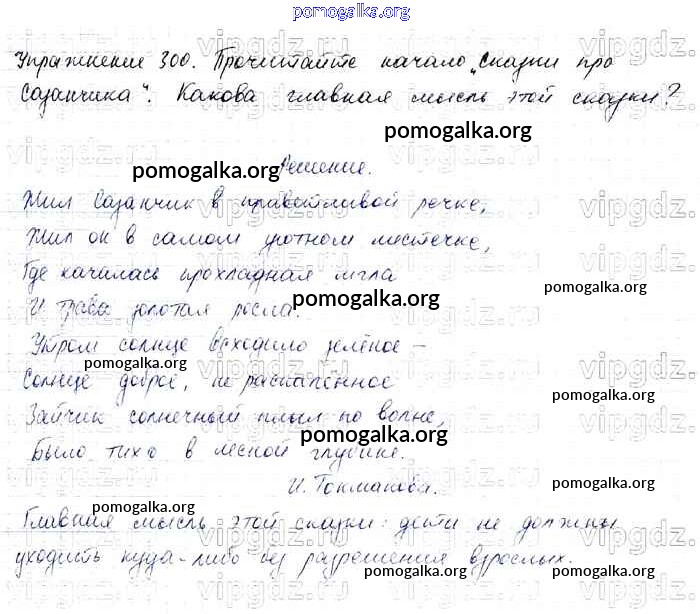 pomogalka.org
Упражнение 300. Прочитайте начало „Сказки про
Сазанчика“. Какова главная мысль этой сказки?
pomogalka.org
pomogalka.org
Решение.
Жил Сазанчик в приветливой речке,
Жил он в самом уютном местечке,
Где качалась прохладная мгла
И трава золотая росла.
pomogalka.org
pomogalka.org
Утром солнце всходило зелёное –
pomogalka.org
Солнце доброе, не распалённое
pomogalka.org
Зайчик солнечный плыл по волне,
pomogalka.org
Было тихо в лесной глубине.
И. Токмакова.
pomogalka.org
pomogalka.org
Главная мысль этой сказки: дети не должны
уходить куда-либо без разрешения взрослых.
pomogalka.org
pomogalka.org
vipgdz.ru